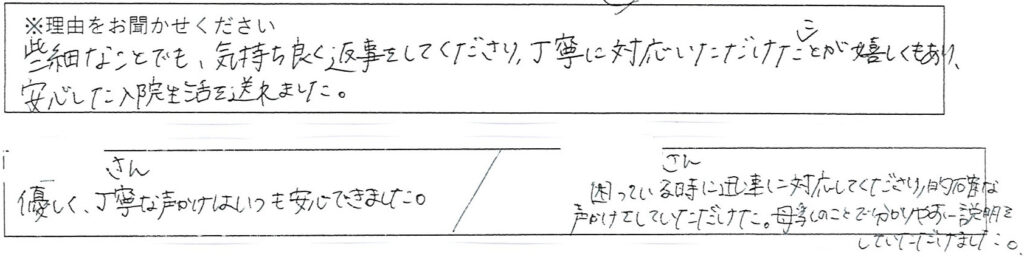 ※理由をお聞かせください
些細なことでも、気持ち良く返事をしてくださり、丁寧に対応いただけたことが嬉しくもあり、
安心した入院生活を送れました。
さん
優しく、丁寧な声かけはいつも安心できました。
さん
困っている時に迅速に対応してくださり、的確な
声かけをしていただけた。母乳のことで分かりやすい説明を
していただけました。